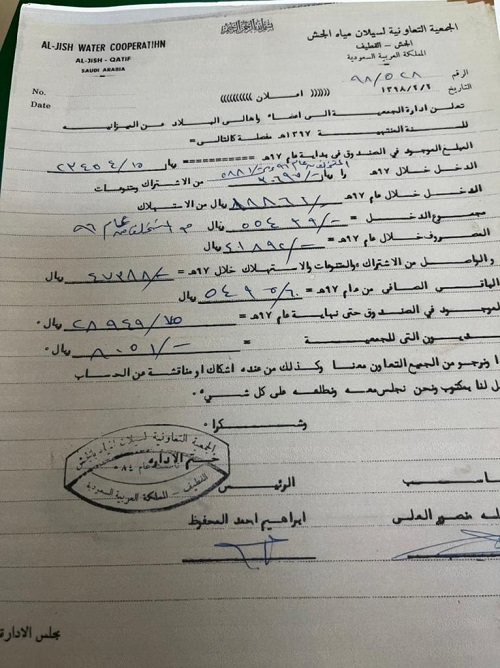 بسم الله الرحمن الرحيم
الجمعية التعاونية لسيلان مياه الجش
الجش - القطيف
المملكة العربية السعودية
AL-JISH WATER COOPERATIHN
AL-JISH - QATIF
SAUDI ARABIA
No.
Date
الرقم ٩٨/٥٢٨
التاريخ ١٣٩٨/٢/٢
)))))) اعلان ((((((((((
تعلن ادارة الجمعية الى اعضاء واهالى البلاد عن الميزانية
للسنة المنتهية ١٣٩٧هـ مفصلة كالتالى =
المبلغ الموجود في الصندوق في بداية عام ٩٧هـ =========== ٢٣٤٥٤/١٥ ريال
الدخل خلال عام ٩٧هـ ريال من الاشتراك ومنتوعات
الدخل خلال عام ٩٧هـ ريال من الاستهلاك
مجموع الدخل = ٥٥٤٣٩/- ريال
المصروف خلال عام ٩٧هـ = ٤١٨٩٢/- ريال
والواصل من الاشتراك والمتنوعات والاستهلاك خلال ٩٧هـ = ٤٧٣٨٨/- ريال
الصافى من عام ٩٧هـ = ٥٤٩٥/٦٠ ريال
موجود في الصندوق حتى نهاية عام ٩٧هـ = ٢٨٩٤٩/٧٥ ريال ٠
ديون التى للجمعية = ٨٠٥١/- ريال ٠
ا ونرجو من الجميع التعاون معنا وكذلك من عنده اشكال او مناقشة عن الحساب
ل لنا بمكتوب ونحن نجلس معه ونطلعه على كل شي ٠
وشكرا ٠
الجمعية التعاونية لسيلان مياه الجش
ختم الادارة
القطيف - المملكة العربية السعودية
الرئيس
ابراهيم احمد المحفوظ
منصور العلي
مجلس الادارة